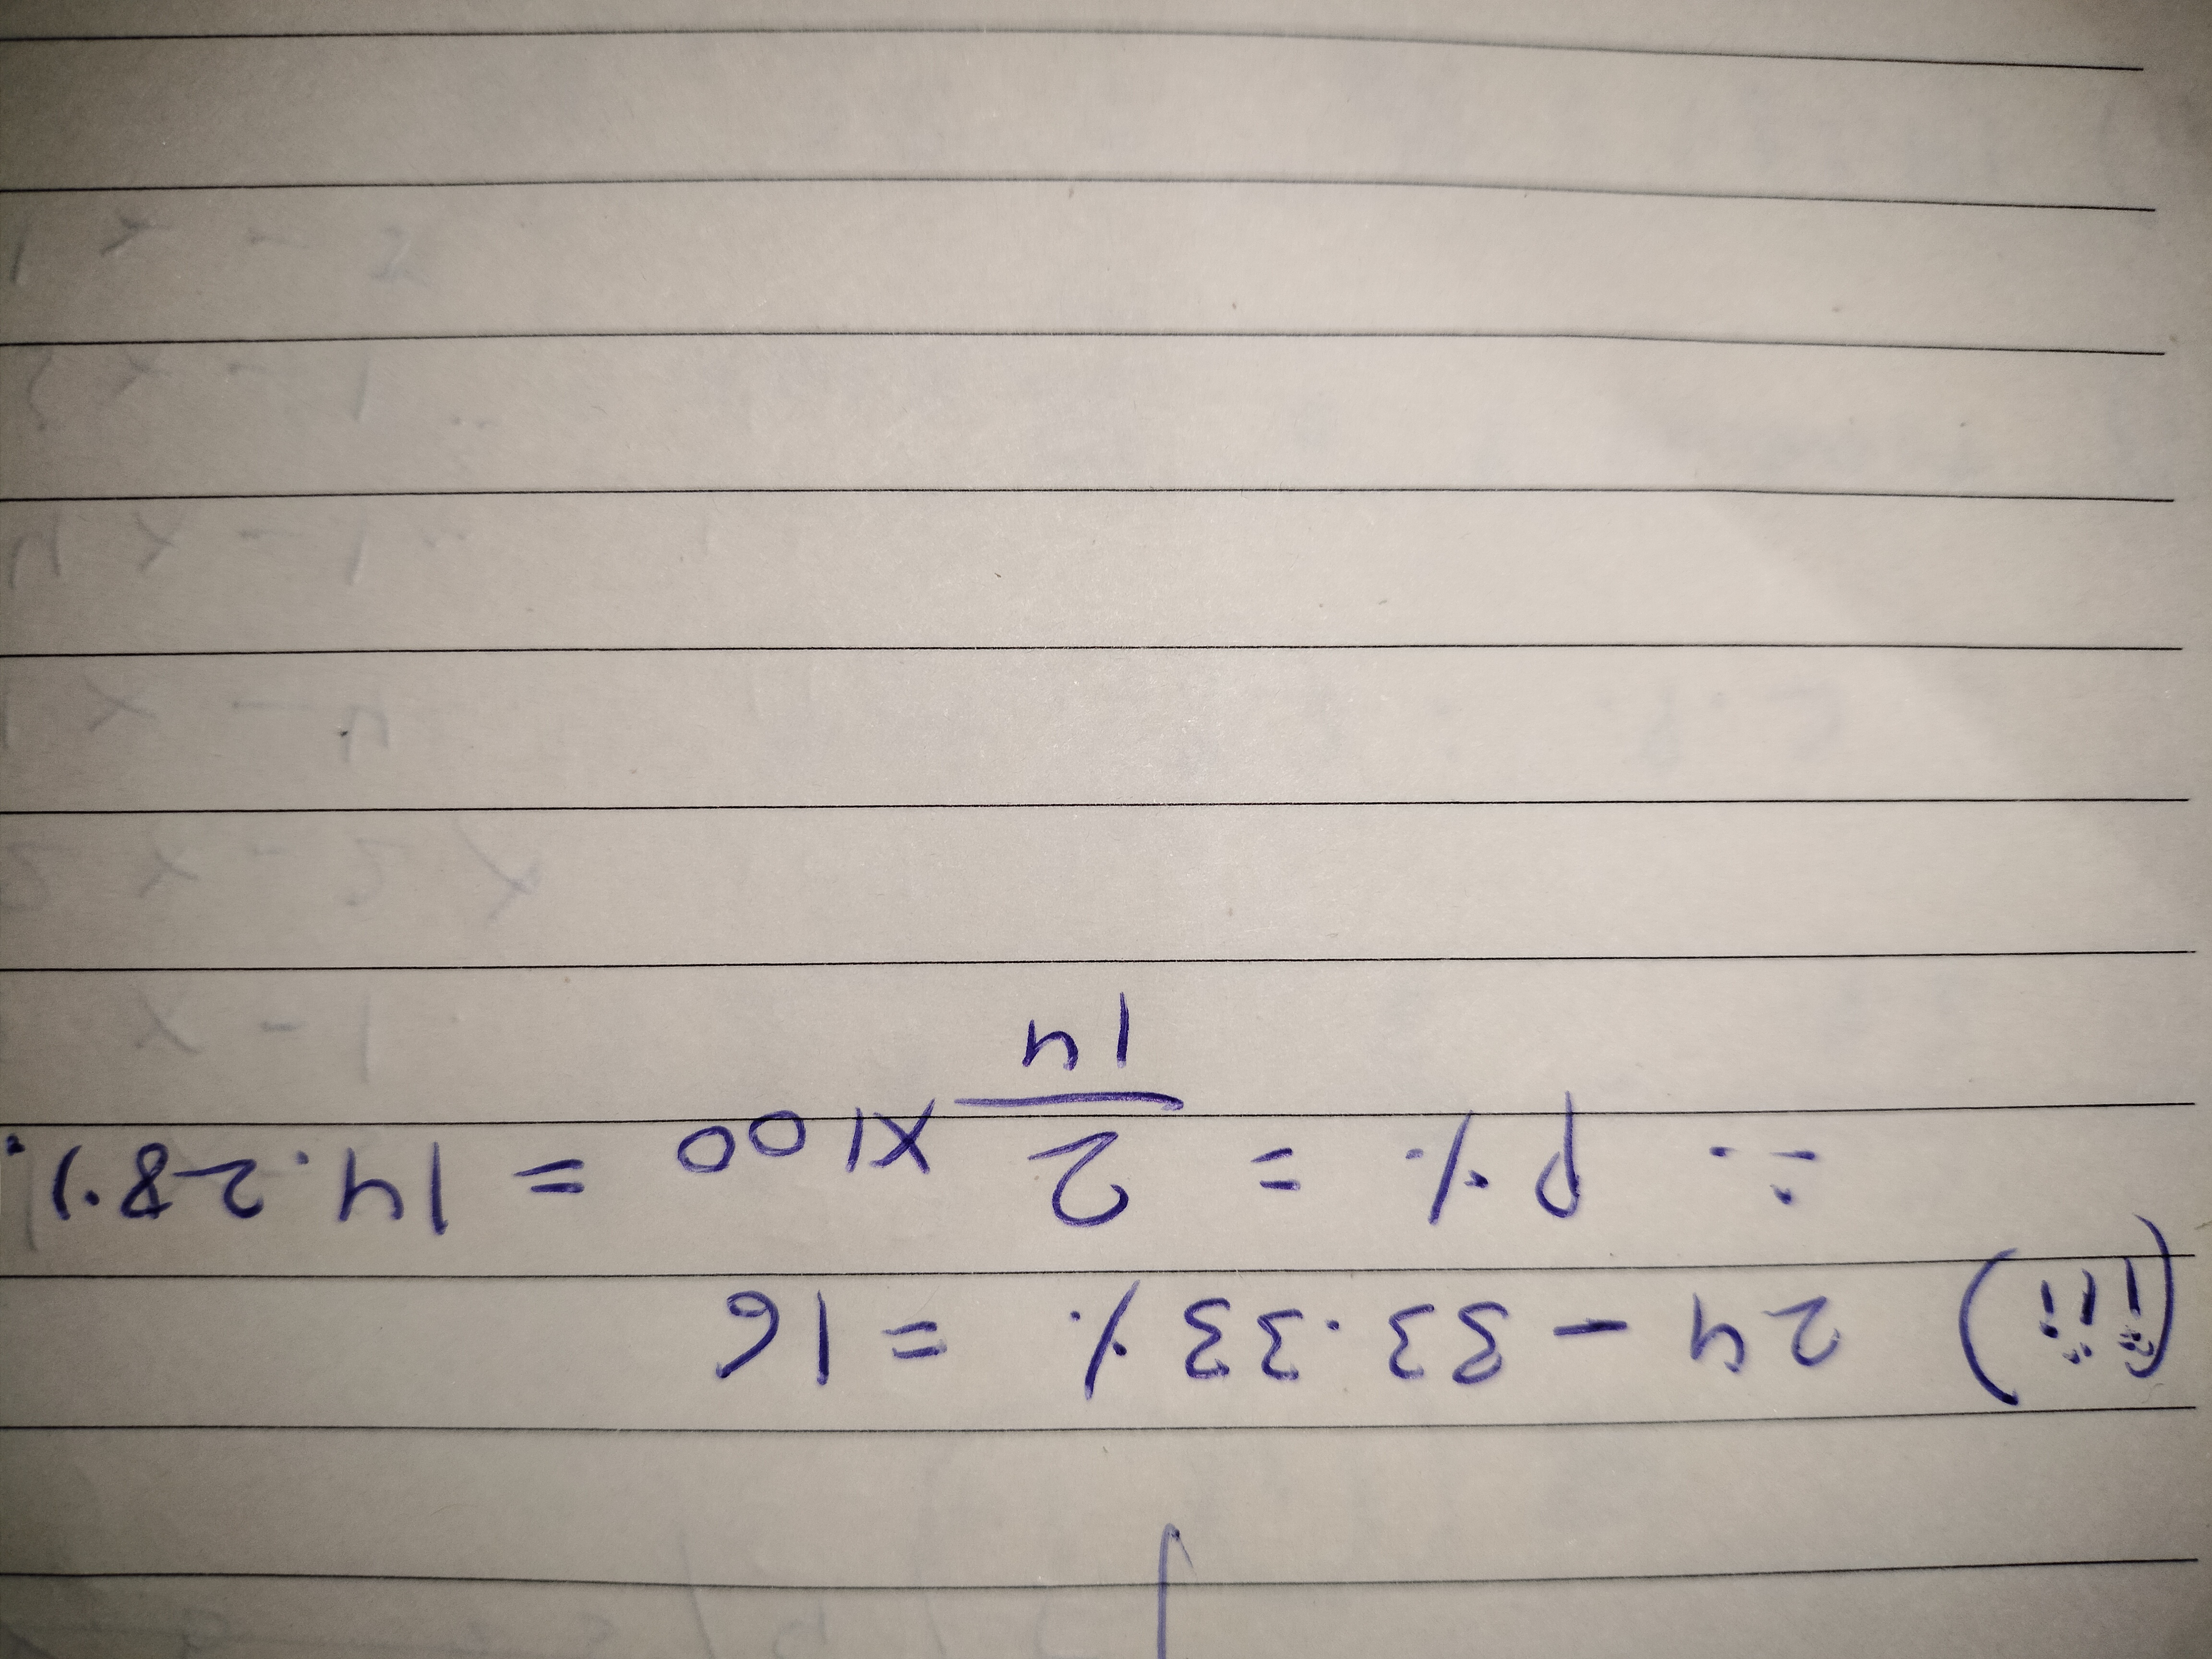 (iii) 24 - 33.33% = 16
∴ P% = 2/14 X100 = 14.28%.